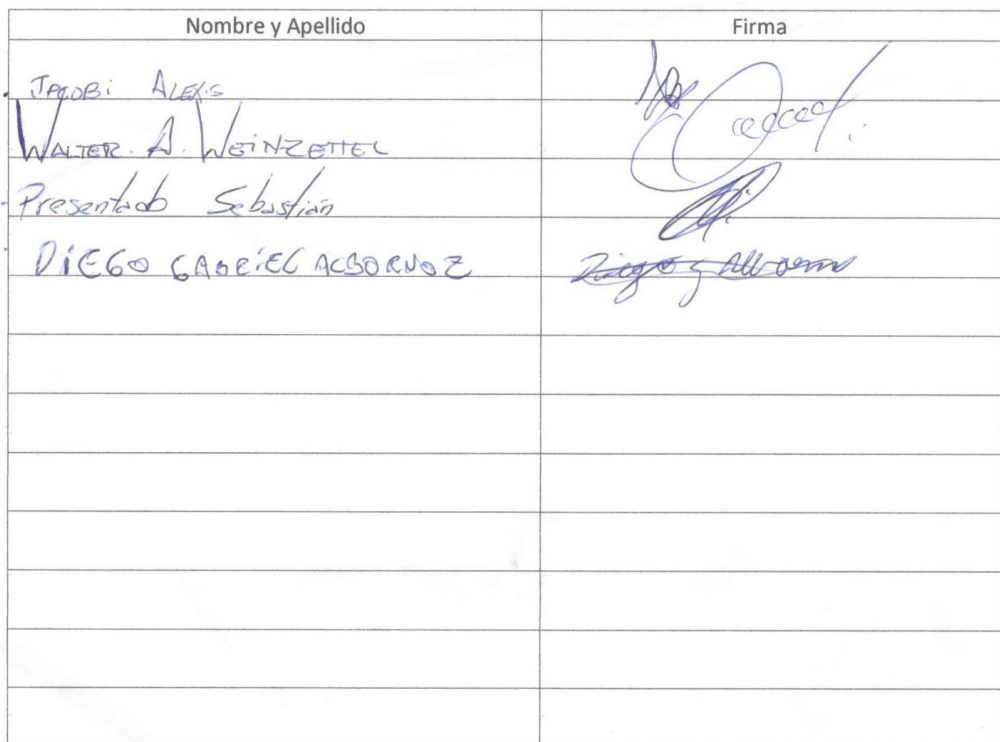 Nombre y Apellido Firma
Jacobi Alexis
Walter A. Weinzettel
Presentado Sebastián
DIEGO GABRIEL ALBORNOZ Diego G Albornoz